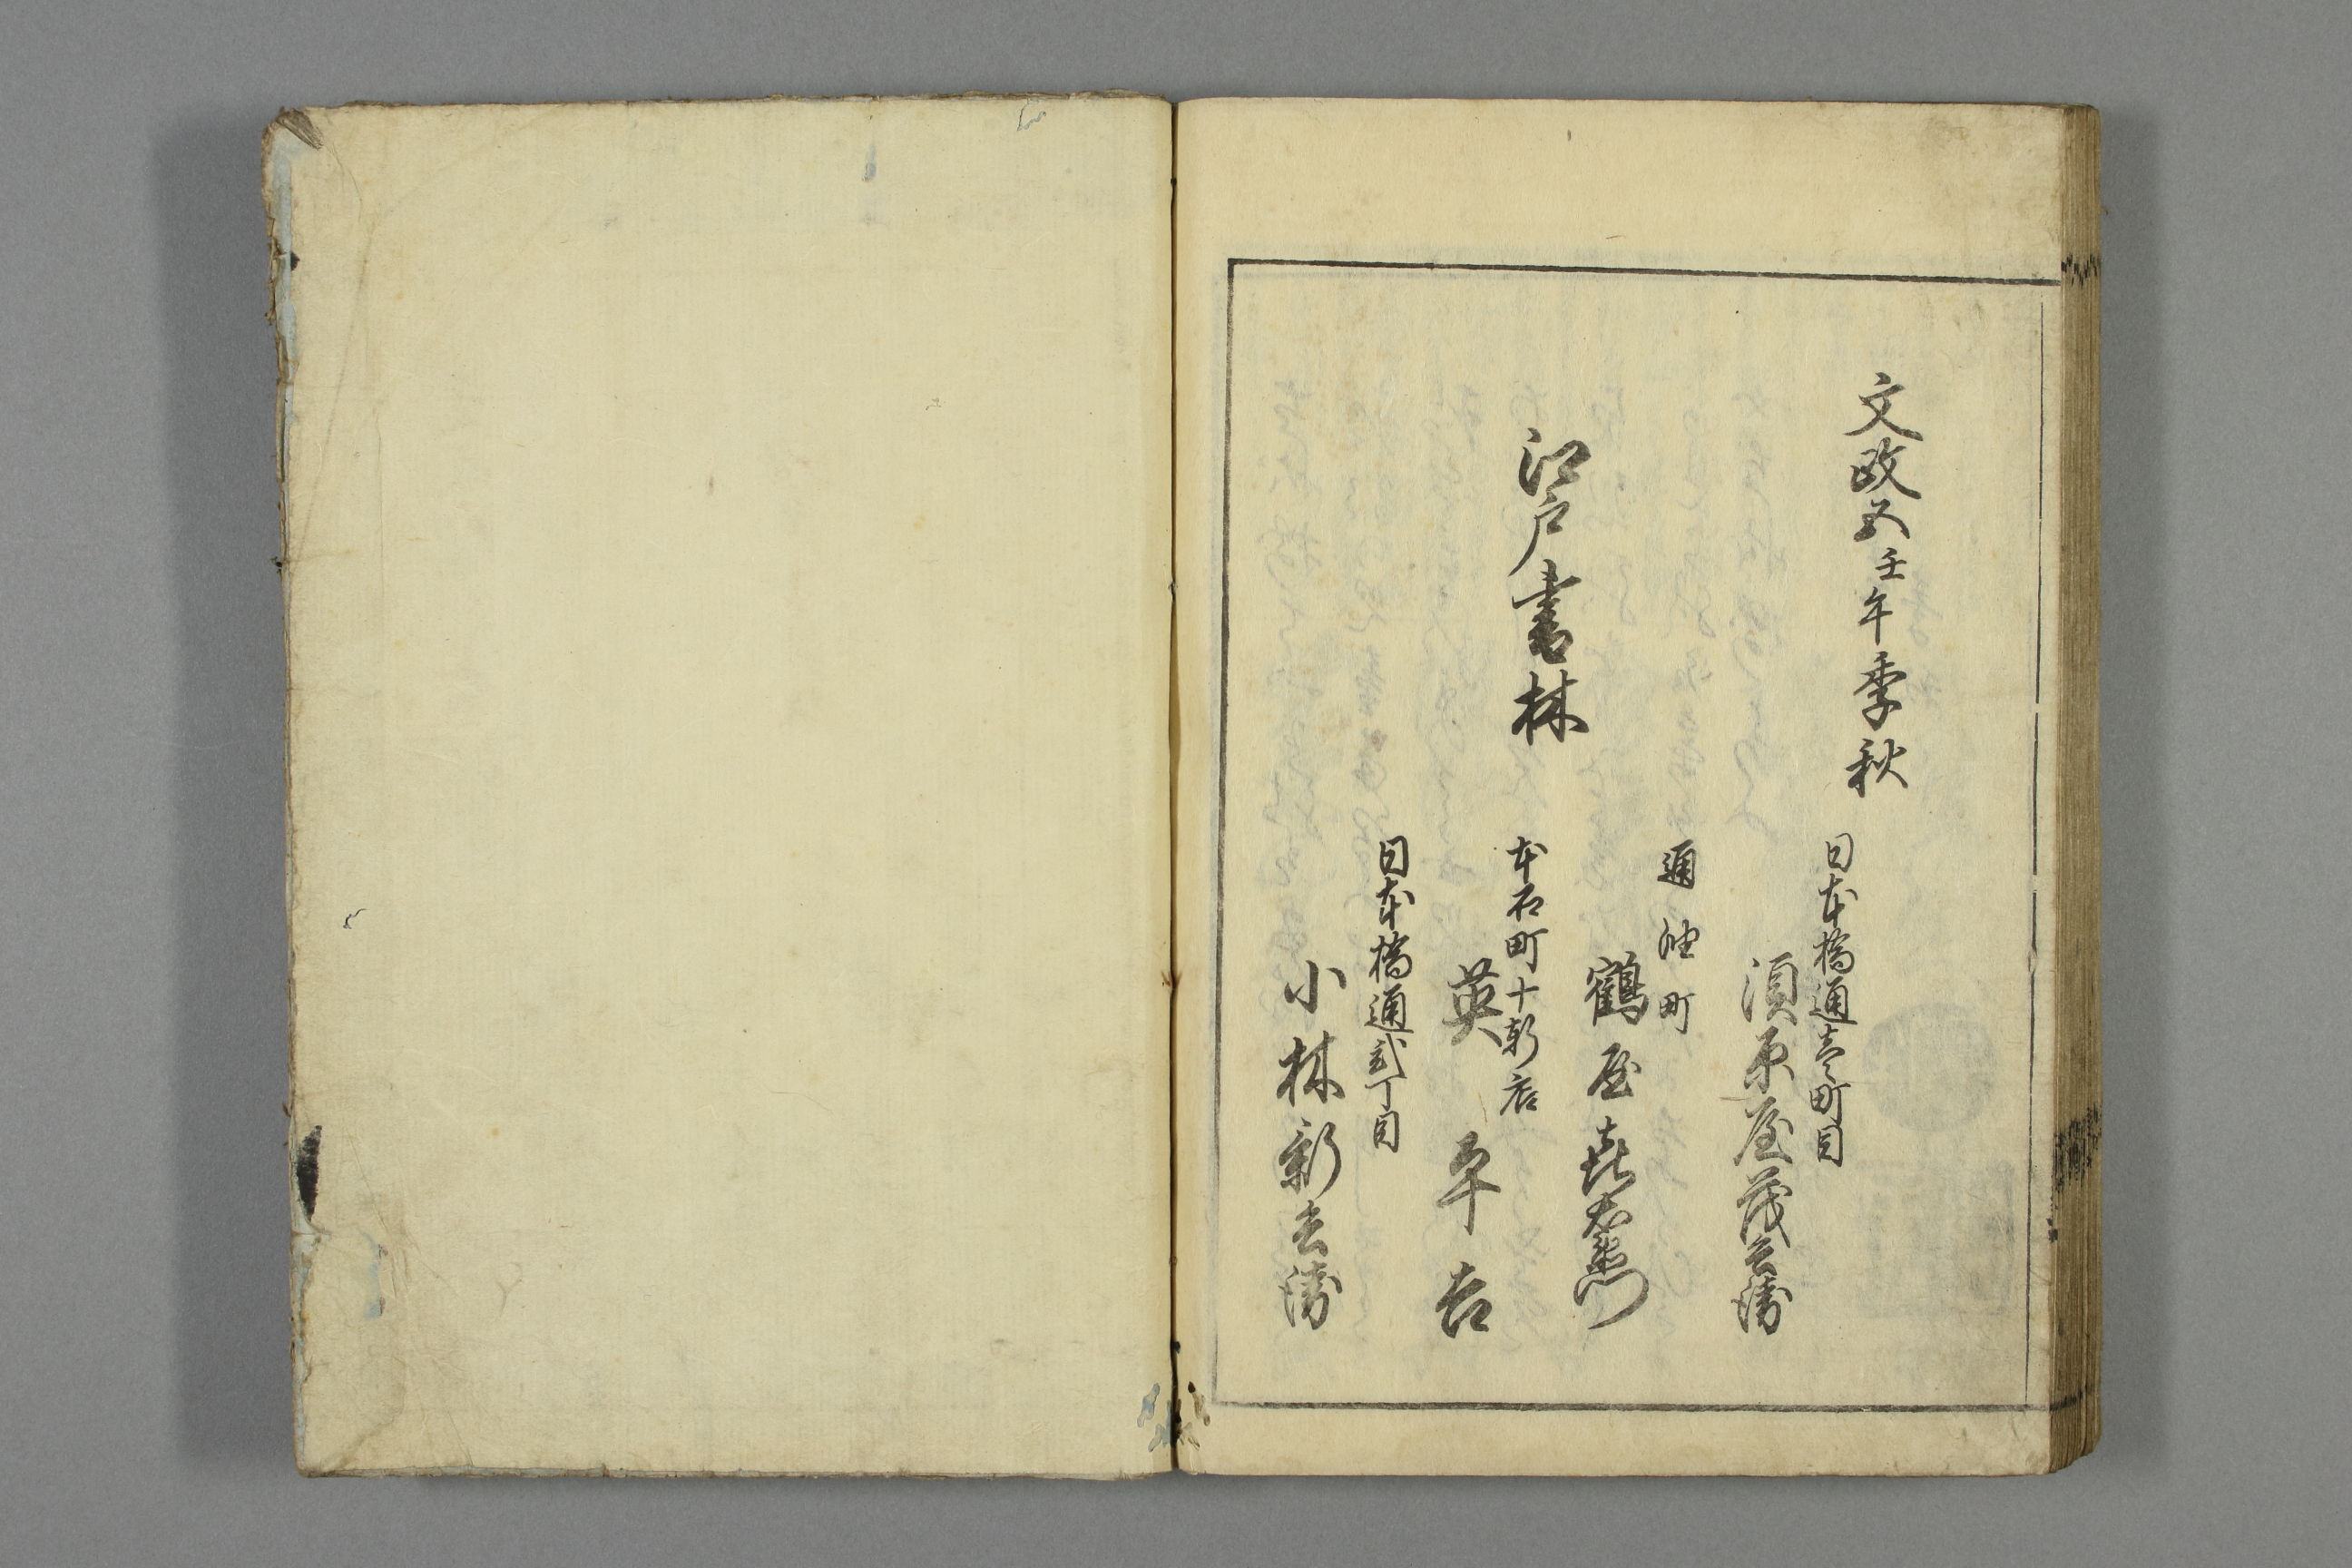 文政五壬午季秋
江戸書林
日本橋通壱町目
須原屋茂兵衛
通油町
鶴屋喜右衛門
本石町十軒店
英平吉
日本橋通弐丁目
小林新兵衛